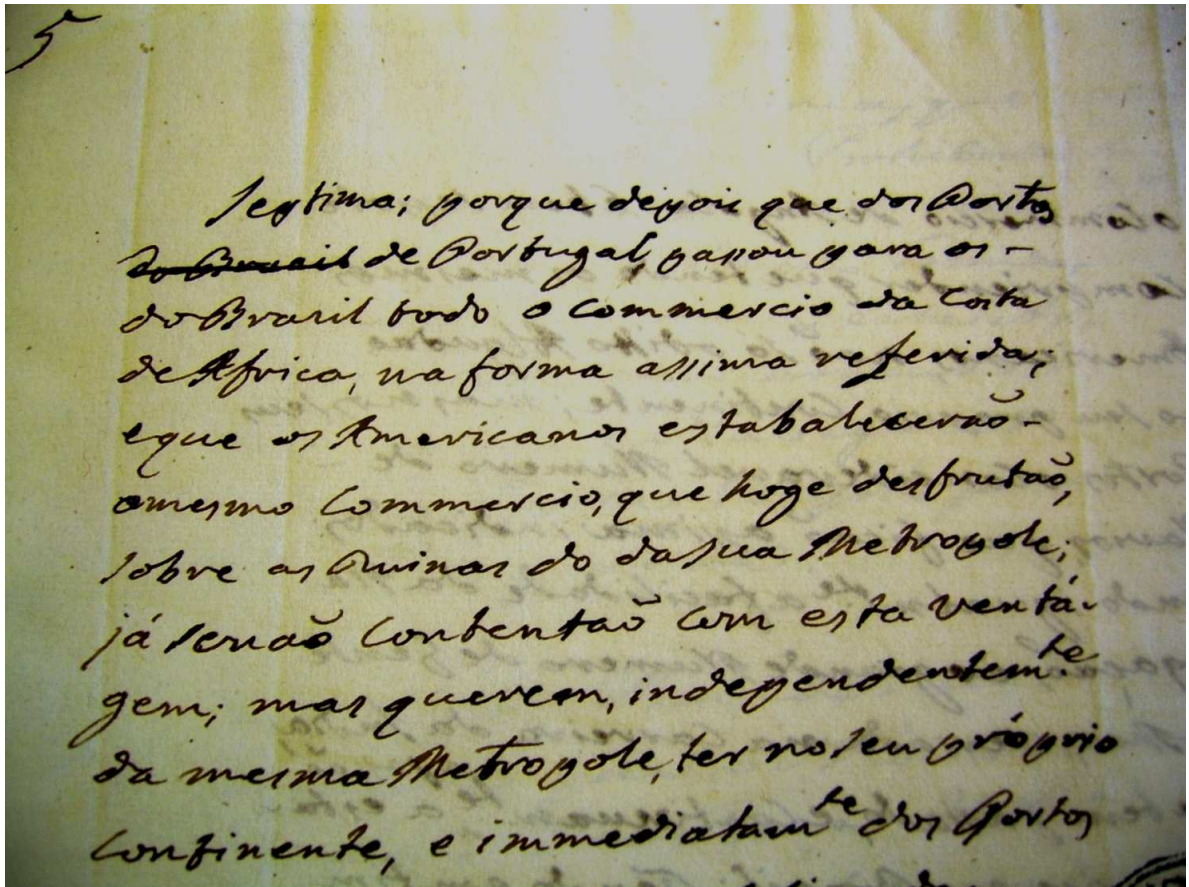 5
Septima; porque depois que dos Portos
do Brazil de Portugal, passou para os -
do Brazil todo o Commercio da Costa
de Africa, na forma assima referida;
eque os Americanos estabalecerão -
omesmo Commercio, que hoge desfrutão,
sobre as Ruinas do dasua Metropole;
já senaõ Contentaõ Com esta ventá-
gem; mas querem, independentem.te
da mesma Metropole, ter no seu próprio
Continente, e immediatam.te dos Portos